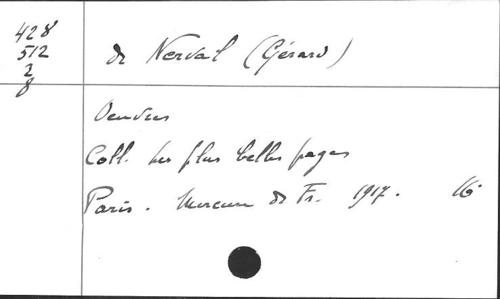 428
512
2
8
de Nerval (Gérard)
Oeuvres
Coll. les plus belles pages
Paris. Mercure de Fr. 1917. 16°